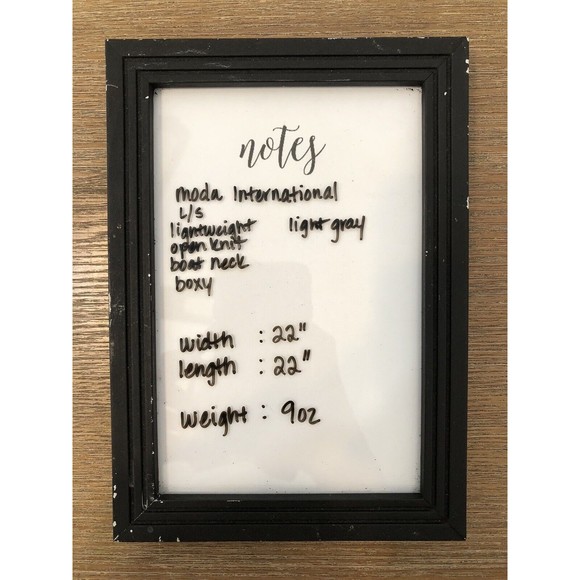 notes
moda International
L/S
lightweight light gray
open knit
boat neck
boxy
width : 22"
length : 22"
weight : 9oz